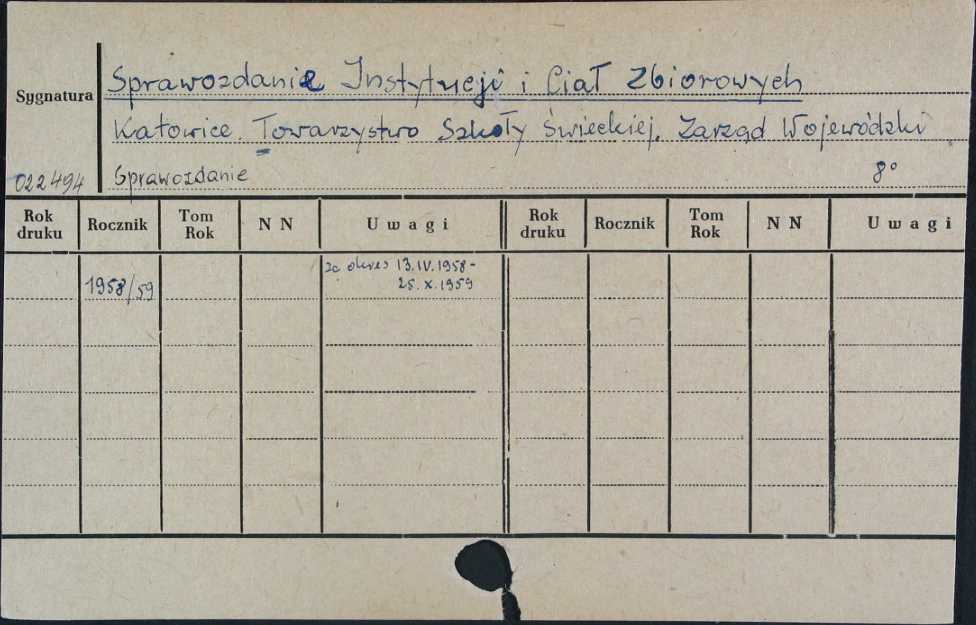 Sprawozdania Instytucji i Ciał Zbiorowych
Sygnatura
Katowice. Towarzystwo Szkoły Świeckiej. Zarząd Wojewódzki
022494 Sprawozdanie 8°
Rok druku Rocznik Tom Rok N N Uwagi Rok druku Rocznik Tom Rok N N Uwagi
za okres 13.IV.1958-
1958/59 25.X.1959